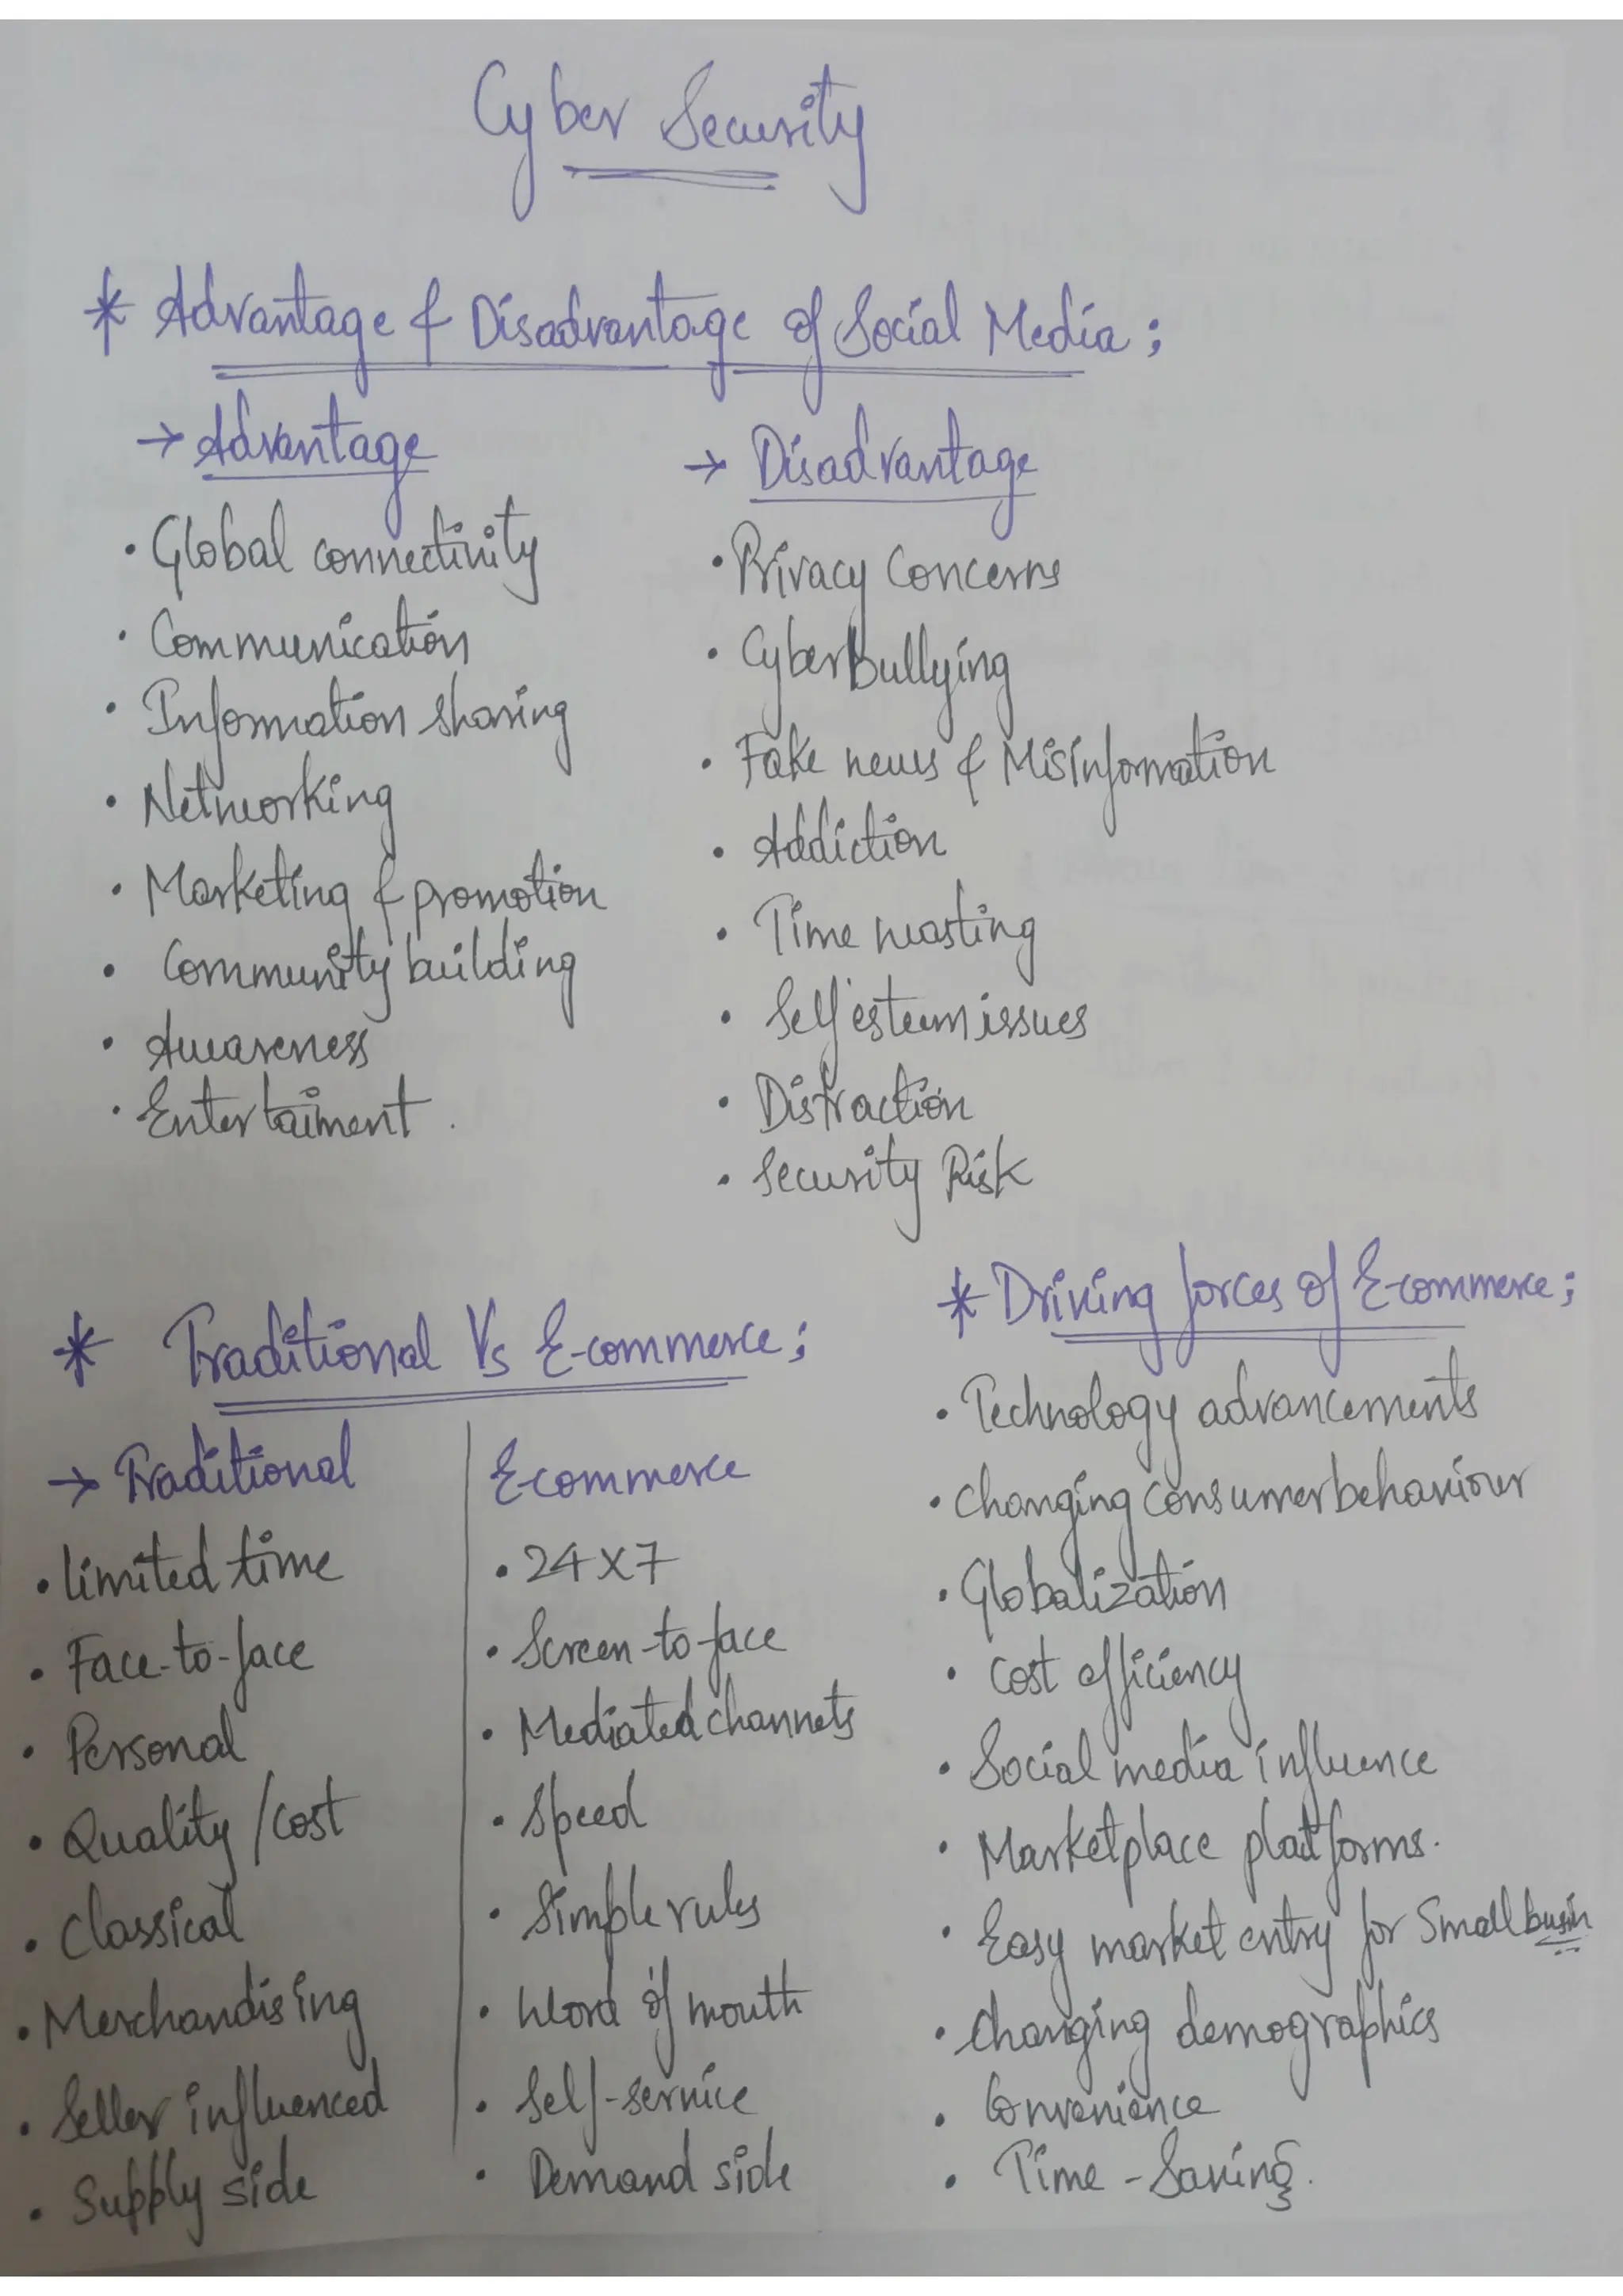 Cyber Security
* Advantage & Disadvantage of Social Media ;
→ Advantage
• Global connectivity
• Communication
• Information sharing
• Networking
• Marketing & promotion
• Community building
• Awareness
• Entertaiment .
→ Disadvantage
• Privacy Concerns
• Cyberbullying
• Fake news & Misinformation
• Addiction
• Time wasting
• Self esteem issues
• Distraction
• Security Risk
* Traditional Vs E-commerce ;
→ Traditional
• limited time
• Face-to-face
• Personal
• Quality / cost
• Classical
• Merchandising
• Seller influenced
• Supply side
E-commerce
• 24 x 7
• Screen-to-face
• Mediated channels
• Speed
• Simple rules
• Word of mouth
• Self-service
• Demand side
* Driving forces of E-commerce ;
• Technology advancements
• changing consumer behaviour
• Globalization
• Cost efficiency
• Social media influence
• Marketplace platforms.
• Easy market entry for Small busin
• changing demographics
• Convenience
• Time - Saving.